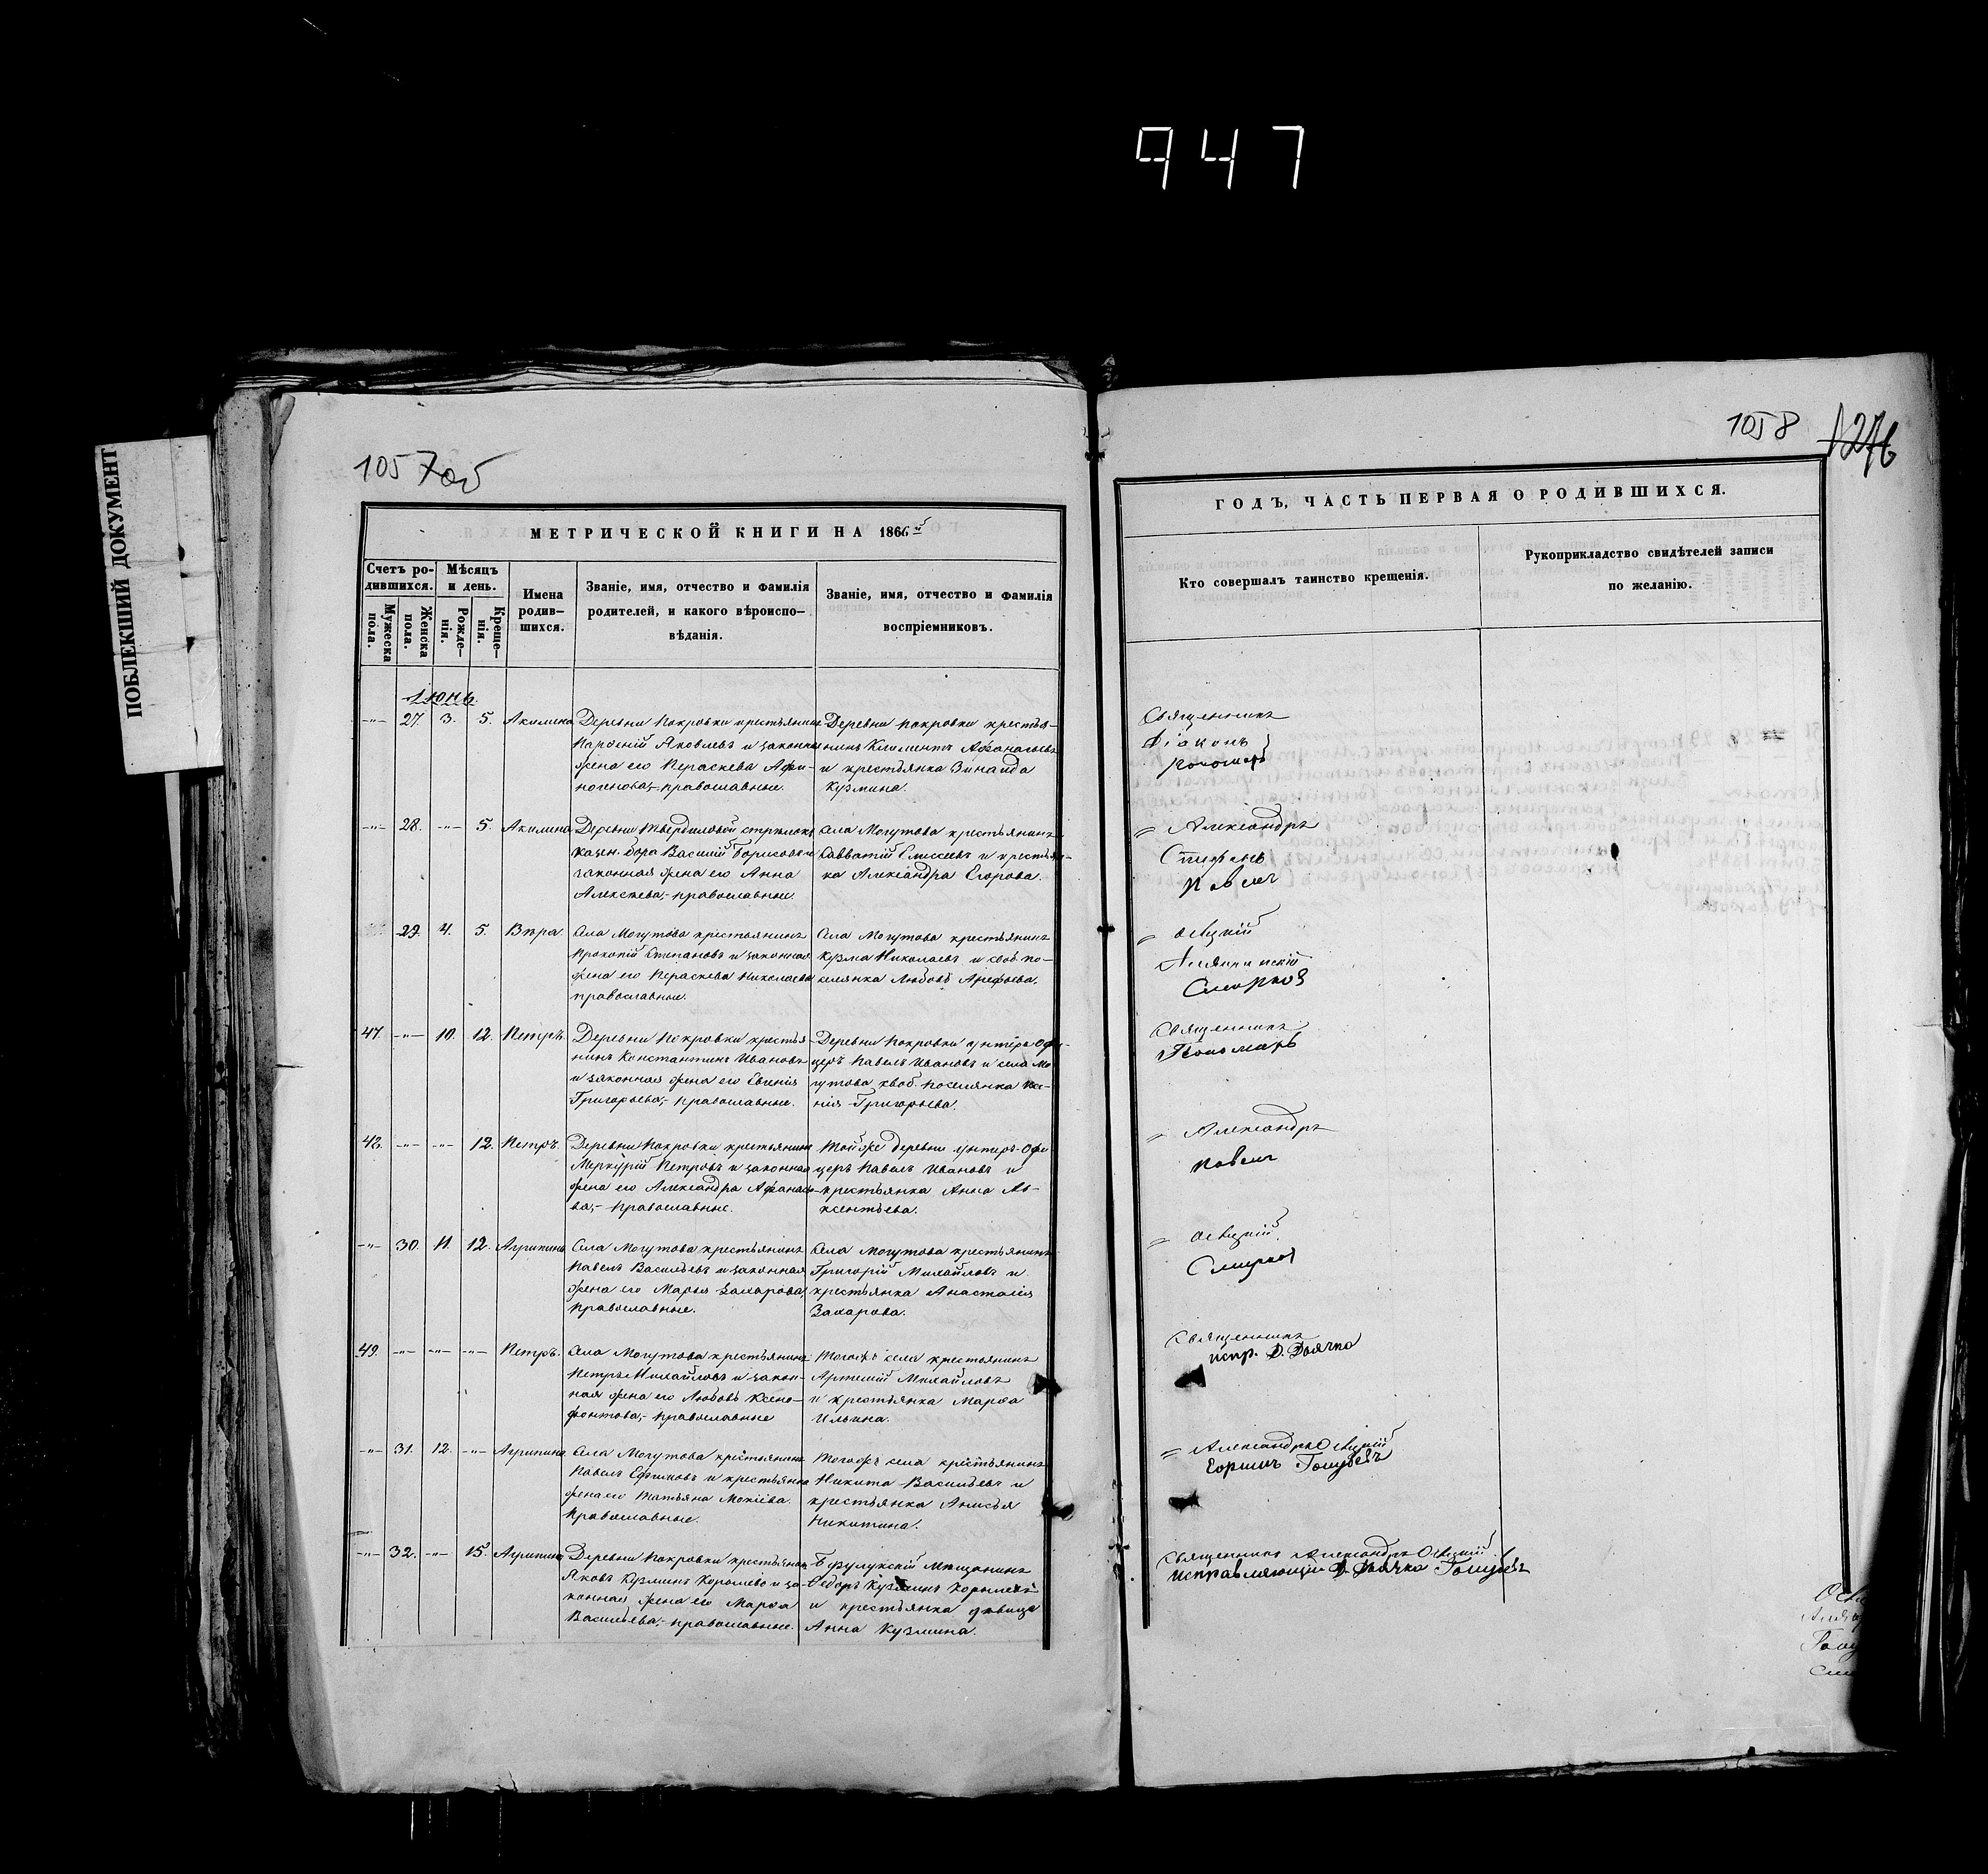 947
ПОБЛЕКШИЙ ДОКУМЕНТ
1057об
МЕТРИЧЕСКОЙ КНИГИ НА 1866й
Счетъ ро-
дившихся.
Мужеска
пола.
Женска
пола.
Мѣсяцъ
и день.
Рожде-
нія.
Креще-
нія.
Имена
родив-
шихся.
Званіе, имя, отчество и фамилія
родителей, и какого вѣроиспо-
вѣданія.
Званіе, имя, отчество и фамилія
воспріемниковъ.
Іюнь.
-"- 27. 3. 5. Акилина
Деревни Покровки крестьянинъ
Парѳеній Яковлевъ и законная
жена его Параскева Афи-
ногенова,- православные.
Деревни Покровки крестья-
нинъ Климентъ Афанасьевъ
и крестьянка Зинаида
Кузмина.
-"- 28. -"- 5. Акилина
Деревни Твердиловой стрѣлокъ
казен. бора Василій Борисовъ и
законная жена его Анна
Алексѣева,- православные.
Села Могутова крестьянинъ
Савватій Елисеевъ и крестьян-
ка Александра Егорова.
29. 4. 5. Вѣра.
Села Могутова крестьянинъ
Прокопій Степановъ и законная
жена его Параскева Николаева
православные.
Села Могутова крестьянинъ
Кузма Николаевъ и своб. по-
селянка Любовь Арефьева.
47. -"- 10. 12. Петръ.
Деревни Покровки крестья-
нинъ Константинъ Ивановъ
и законная жена его Евгенія
Григорьева,- православные.
Деревни Покровки унтеръ-офи-
церъ Павелъ Ивановъ и села Мо-
гутова своб. поселянка Ксе-
нія Григорьева.
48. -"- -"- 12. Петръ.
Деревни Покровки крестьянинъ
Меркурій Петровъ и законная
жена его Александра Афанась-
ва,- православные.
Той же деревни унтеръ-офи-
церъ Павелъ Ивановъ и
крестьянка Анна Ав-
ксентьева.
-"- 30. 11. 12. Агрипина
Села Могутова крестьянинъ
Павелъ Васильевъ и законная
жена его Марья Захарова,
православные.
Села Могутова крестьянинъ
Григорій Михайловъ и
крестьянка Анастасія
Захарова.
49. -"- -"- -"- Петръ.
Села Могутова крестьянинъ
Петръ Михайловъ и закон-
ная жена его Любовь Ксено-
фонтова,- православные
Того жъ села крестьянинъ
Артемій Михайловъ
и крестьянка Марѳа
Ильина.
-"- 31. 12. -"- Агрипина
Села Могутова крестьянинъ
Павелъ Ефимовъ и крестьянка
жена его Татьяна Мокіева.
Православные.
Того жъ села крестьянинъ
Никита Васильевъ и
крестьянка Анисья
Никитина.
-"- 32. -"- 15. Агрипина
Деревни Покровки крестьянинъ
Яковъ Кузминъ и за-
конная жена его Марѳа
Васильева,- православные.
Бузулукскій мѣщанинъ
Ѳедоръ Кузминъ
и крестьянка дѣвица
Анна Кузмина.
1058
1276
ГОДЪ, ЧАСТЬ ПЕРВАЯ О РОДИВШИХСЯ.
Кто совершалъ таинство крещенія.
Рукоприкладство свидѣтелей записи
по желанію.
Священникъ
Діаконъ
Пономарь
Александръ
Стефанъ
Павелъ
Смирнов
Священникъ
Пономарь
Александръ
Павелъ
Смирнов
Священникъ
испр. д. Дьячка
Александръ
Голубевъ
Священникъ Александръ
исправляющій д. Дьячка Голубевъ